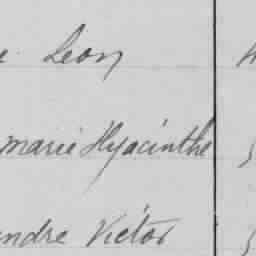 Leon
marie Hyacinthe
andre Victor